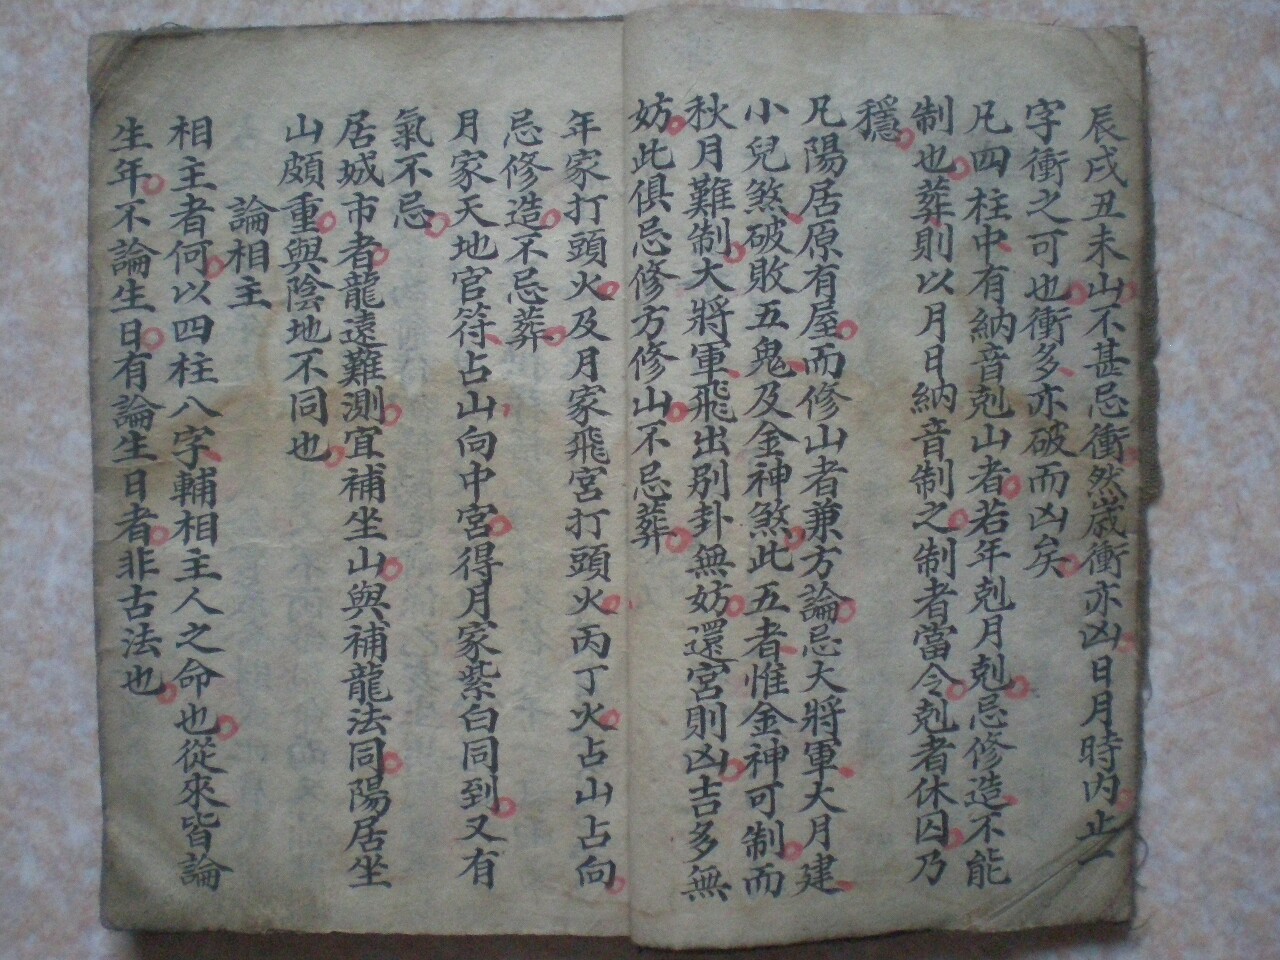 辰戌丑未山不甚忌衝然歳衝亦凶日月時内止一
字衝之可也衝多亦破而凶矣
凡四柱中有納音剋山者若年剋月剋忌修造不能
制也葬則以月日納音制之制者當令剋者休囚乃
穩
凡陽居原有屋而修山者兼方論忌大將軍大月建
小兒煞破敗五鬼及金神煞此五者惟金神可制而
秋月難制大將軍飛出别卦無妨還宮則凶吉多無
妨此俱忌修方修山不忌葬
年家打頭火及月家飛宮打頭火丙丁火占山占向
忌修造不忌葬
月家天地官符占山向中宮得月家紫白同到又有
氣不忌
居城市者龍遠難測宜補坐山與補龍法同陽居坐
山頗重與陰地不同也
論相主
相主者何以四柱八字輔相主人之命也從來皆論
生年不論生日有論生日者非古法也